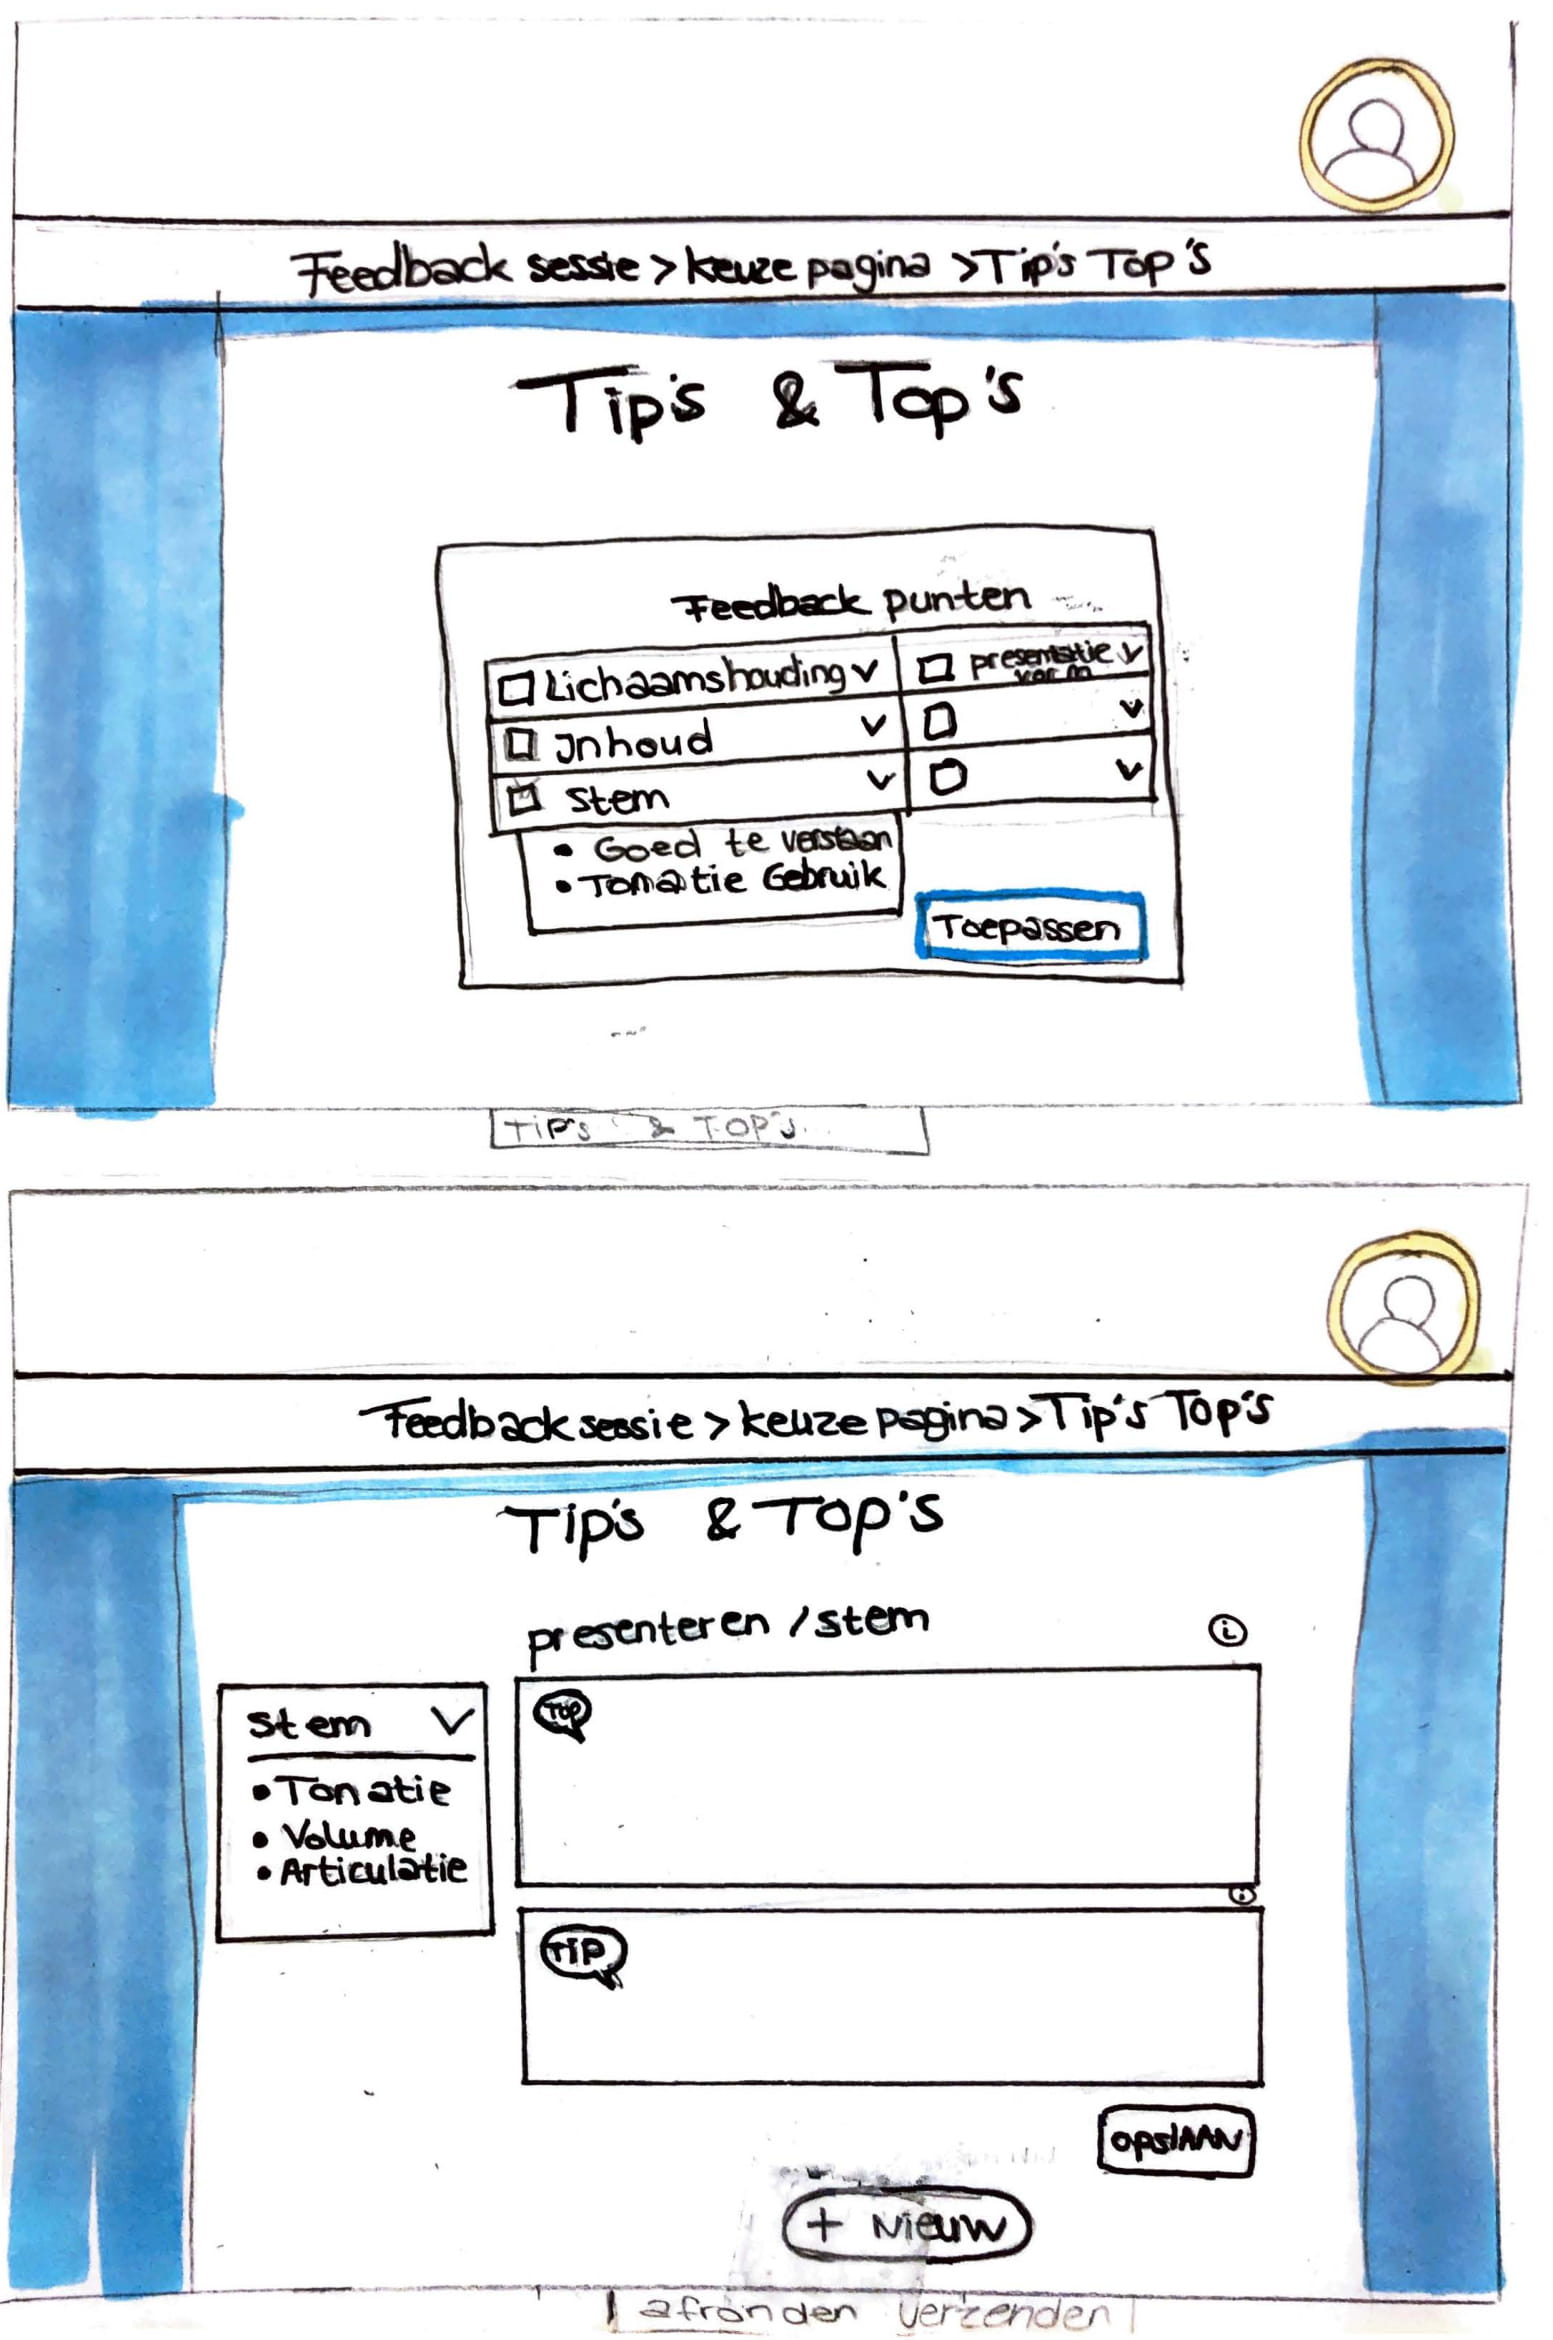 Feedback sessie > keuze pagina > Tip's Top's
Tip's & Top's
Feedback punten
Lichaamshouding
presentatie
vorm
Inhoud
Stem
• Goed te verstaan
• Tomatie Gebruik
Toepassen
TIP's & TOP's
Feedback sessie > keuze pagina > Tip's Top's
Tip's & Top's
presenteren / stem
i
Stem
• Tonatie
• Volume
• Articulatie
Top
i
TIP
opslAAN
+ Nieuw
afronden verzenden